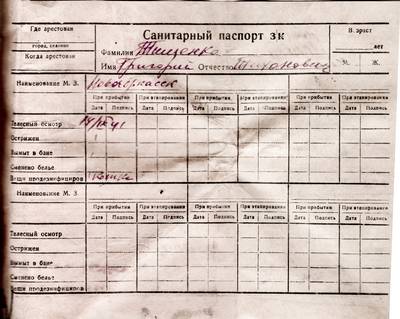 Где арестован
город, селение
Когда арестован
Санитарный паспорт з к
Фамилия Тищенко
Имя Григорий Отчество
В зраст
лет
М. Ж.
Наименование М. З. Новочеркасск
При прибытии При этапировании При прибытии При этапировании При прибытии При этапировании
Дата Подпись Дата Подпись Дата Подпись Дата Подпись Дата Подпись Дата Подпись
Телесный осмотр
Острижен
Вымыт в бане
Сменено белье
Вещи продезинфициров
Наименование М. З
При прибытии При этапировании При прибытии При этапировании При прибытии При этапировании
Дата Подпись Дата Подпись Дата Подпись Дата Подпись Дата Подпись Дата Подпись
Телесный осмотр
Острижен
Вымыт в бане
Сменено белье
Вещи продезинфициров